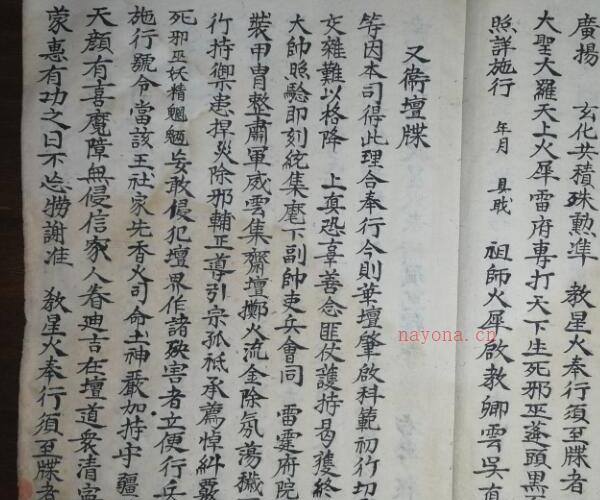 廣揚　玄化共積殊勲準　教星火奉行須至牒者
大聖大羅天上火犀雷府專打天下生死邪巫蓬頭黑
照詳施行　年月　具職　祖師火犀啟教卿雲吳
又衛壇牒
等因本司得此理合奉行今則華壇肇啟科範初行切
交雜難以格降　上真恐辜善念匪仗護持曷獲終
大帥照驗即刻統集麾下副帥吏兵會同　雷霆府院
裝甲冑整肅軍威雲集齋壇擲火流金除氛蕩穢
行持禦患捍災除邪輔正導引宗孤祗承薦悼糾嚴
死邪巫妖精魍魎妄敢侵犯壇界作諸殃害者立便行兵
施行號令當該王社家先香火司命土神嚴加持守疆
天顏有喜魔障無侵信家人眷迪吉在壇道衆清寧
蒙惠有功之日不忘勞謝准　教星火奉行須至牒者
nayona.cn